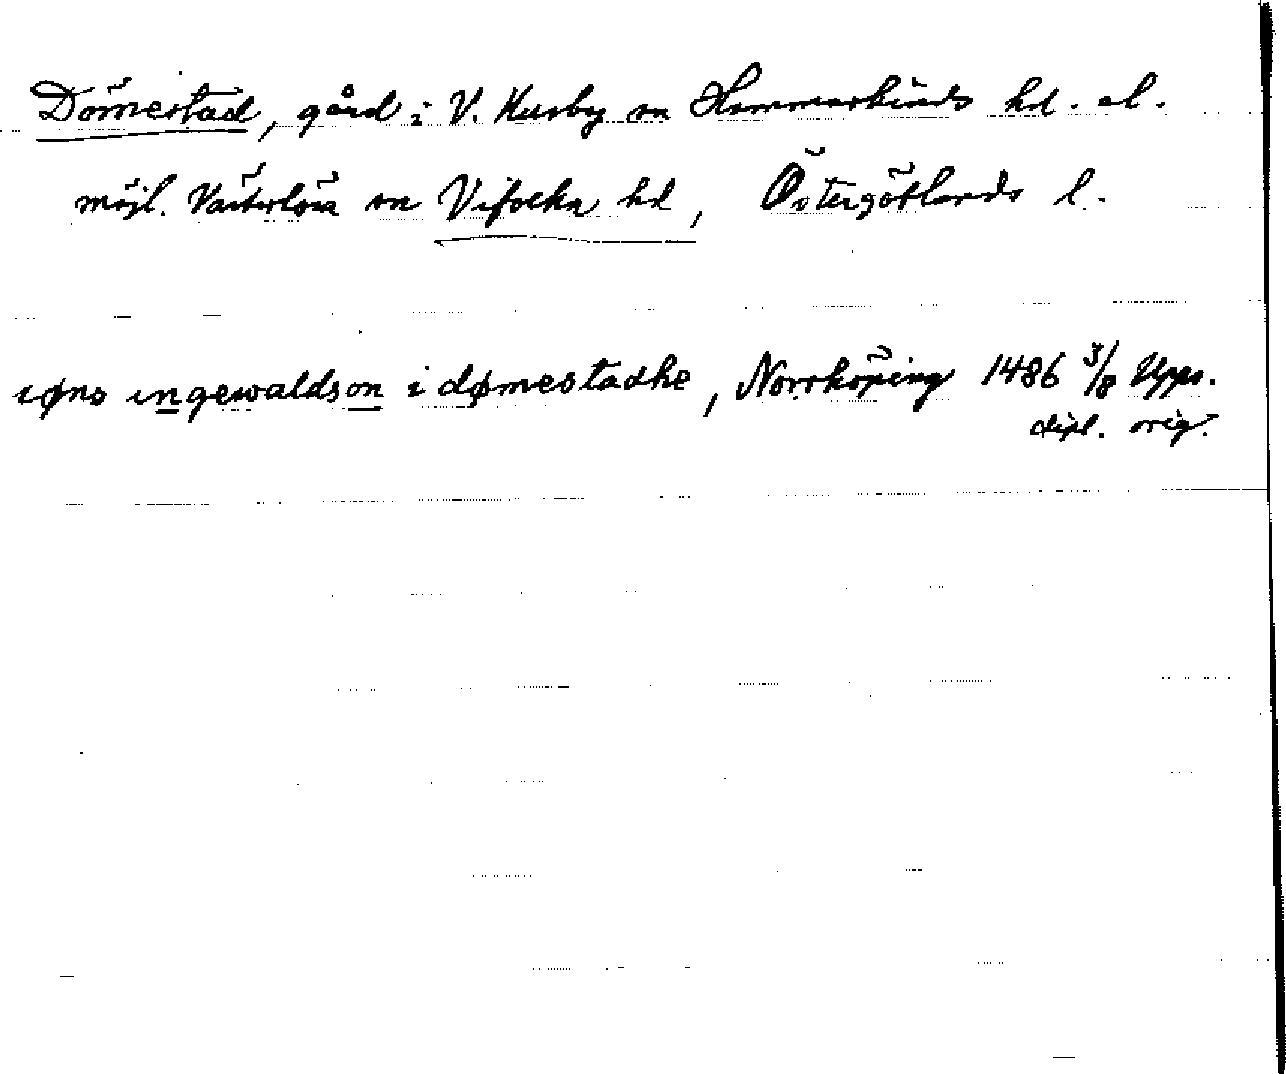 Dömestad, gård i V. Husby sn Hammarkinds hd. el.
möjl. Västerlösa sn Vifolka hd, Östergötlands l.
iøns ingewaldson i dømestadhe, Norrköping 1486 3/8 Upps.
dipl. orig.